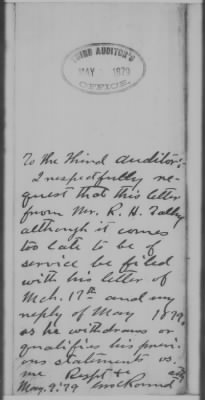 THIRD AUDITOR'S
MAY 1879
OFFICE.
To the Third Auditor:-
I respectfully re-
quest that this letter
from Mr. R. H. Talley
although it comes
too late to be of
service be filed
with his letter of
Mch. 17th and my
reply of May 1879,
as he withdraws or
qualifies his previ-
ous statements vs.
me Respt &c
May. 9. '79